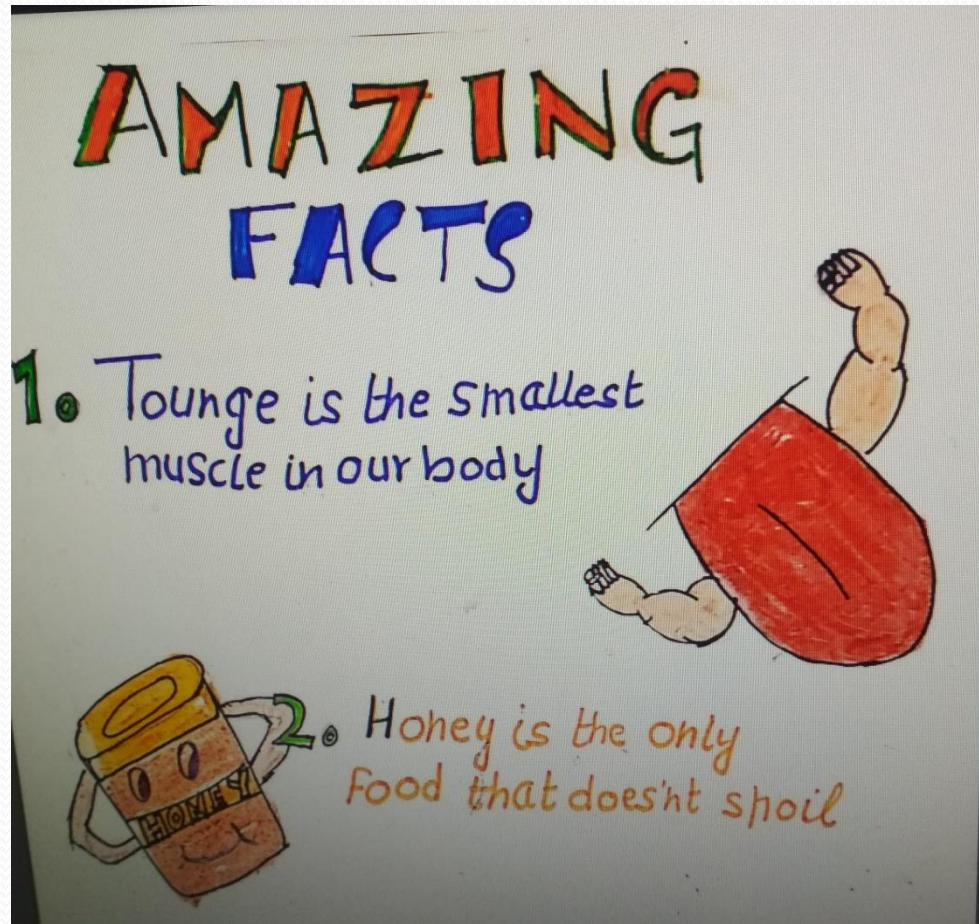 AMAZING
FACTS
1. Tounge is the smallest
muscle in our body
2. Honey is the only
Food that does'nt spoil
HONEY